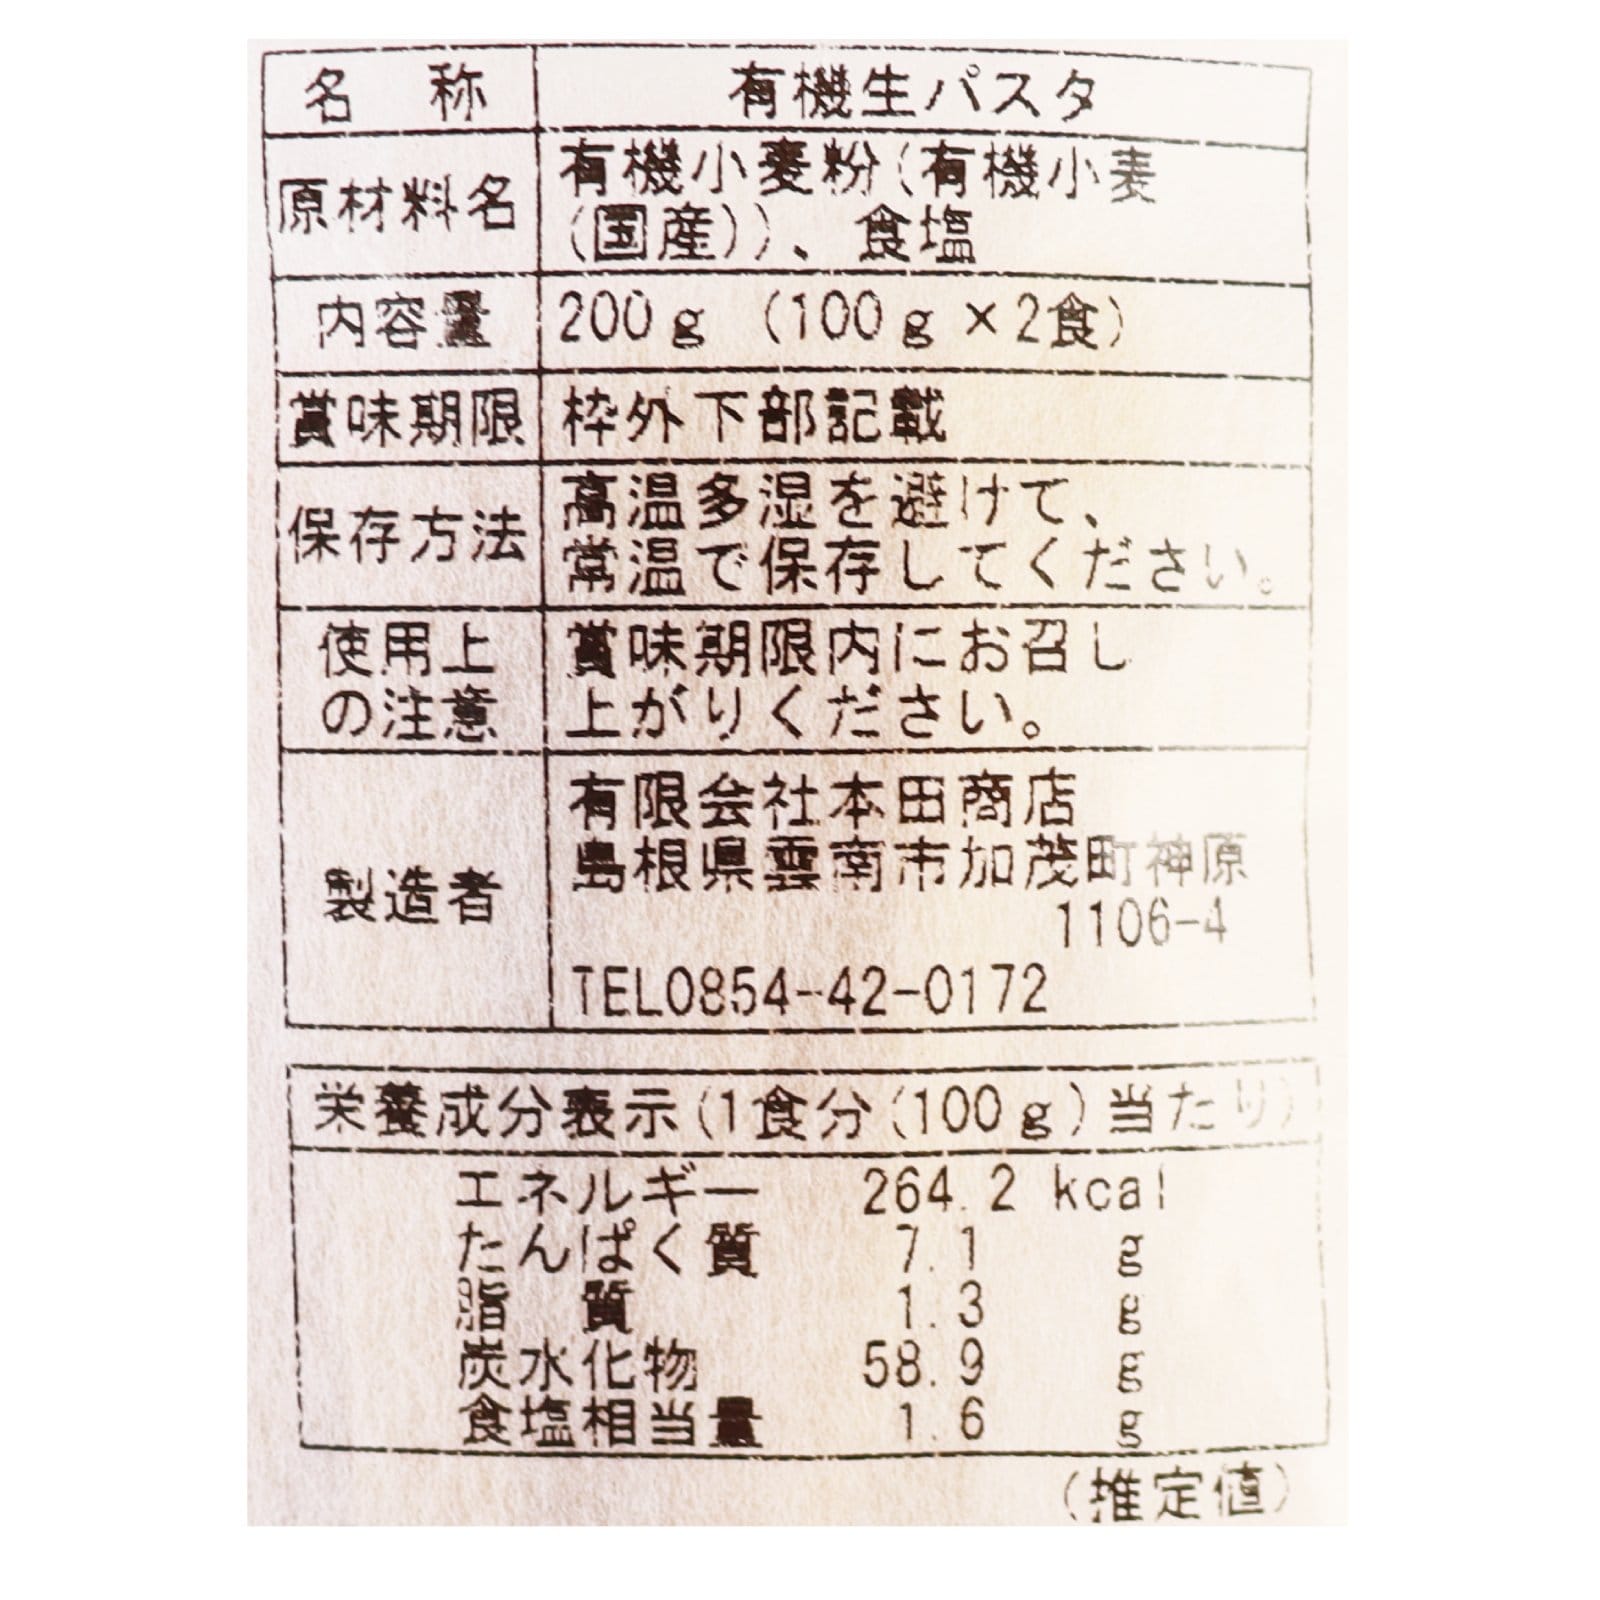 名 称 有機生パスタ
原材料名 有機小麦粉(有機小麦
(国産))、食塩
内容量 200g (100g×2食)
賞味期限 枠外下部記載
保存方法 高温多湿を避けて、
常温で保存してください。
使用上
の注意 賞味期限内にお召し
上がりください。
製造者 有限会社本田商店
島根県雲南市加茂町神原
1106-4
TEL0854-42-0172
栄養成分表示(1食分(100g)当たり)
エネルギー 264.2 kcal
たんぱく質 7.1 g
脂 質 1.3 g
炭水化物 58.9 g
食塩相当量 1.6 g
(推定値)